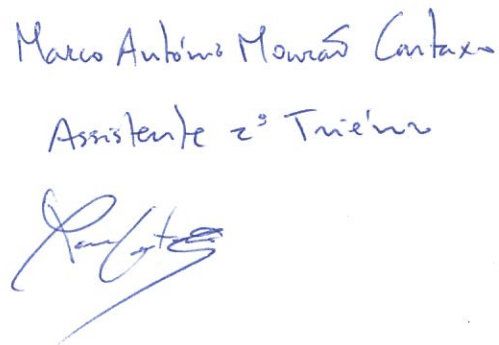 Marco António Mourão Cartaxo
Assistente 2º Triénio